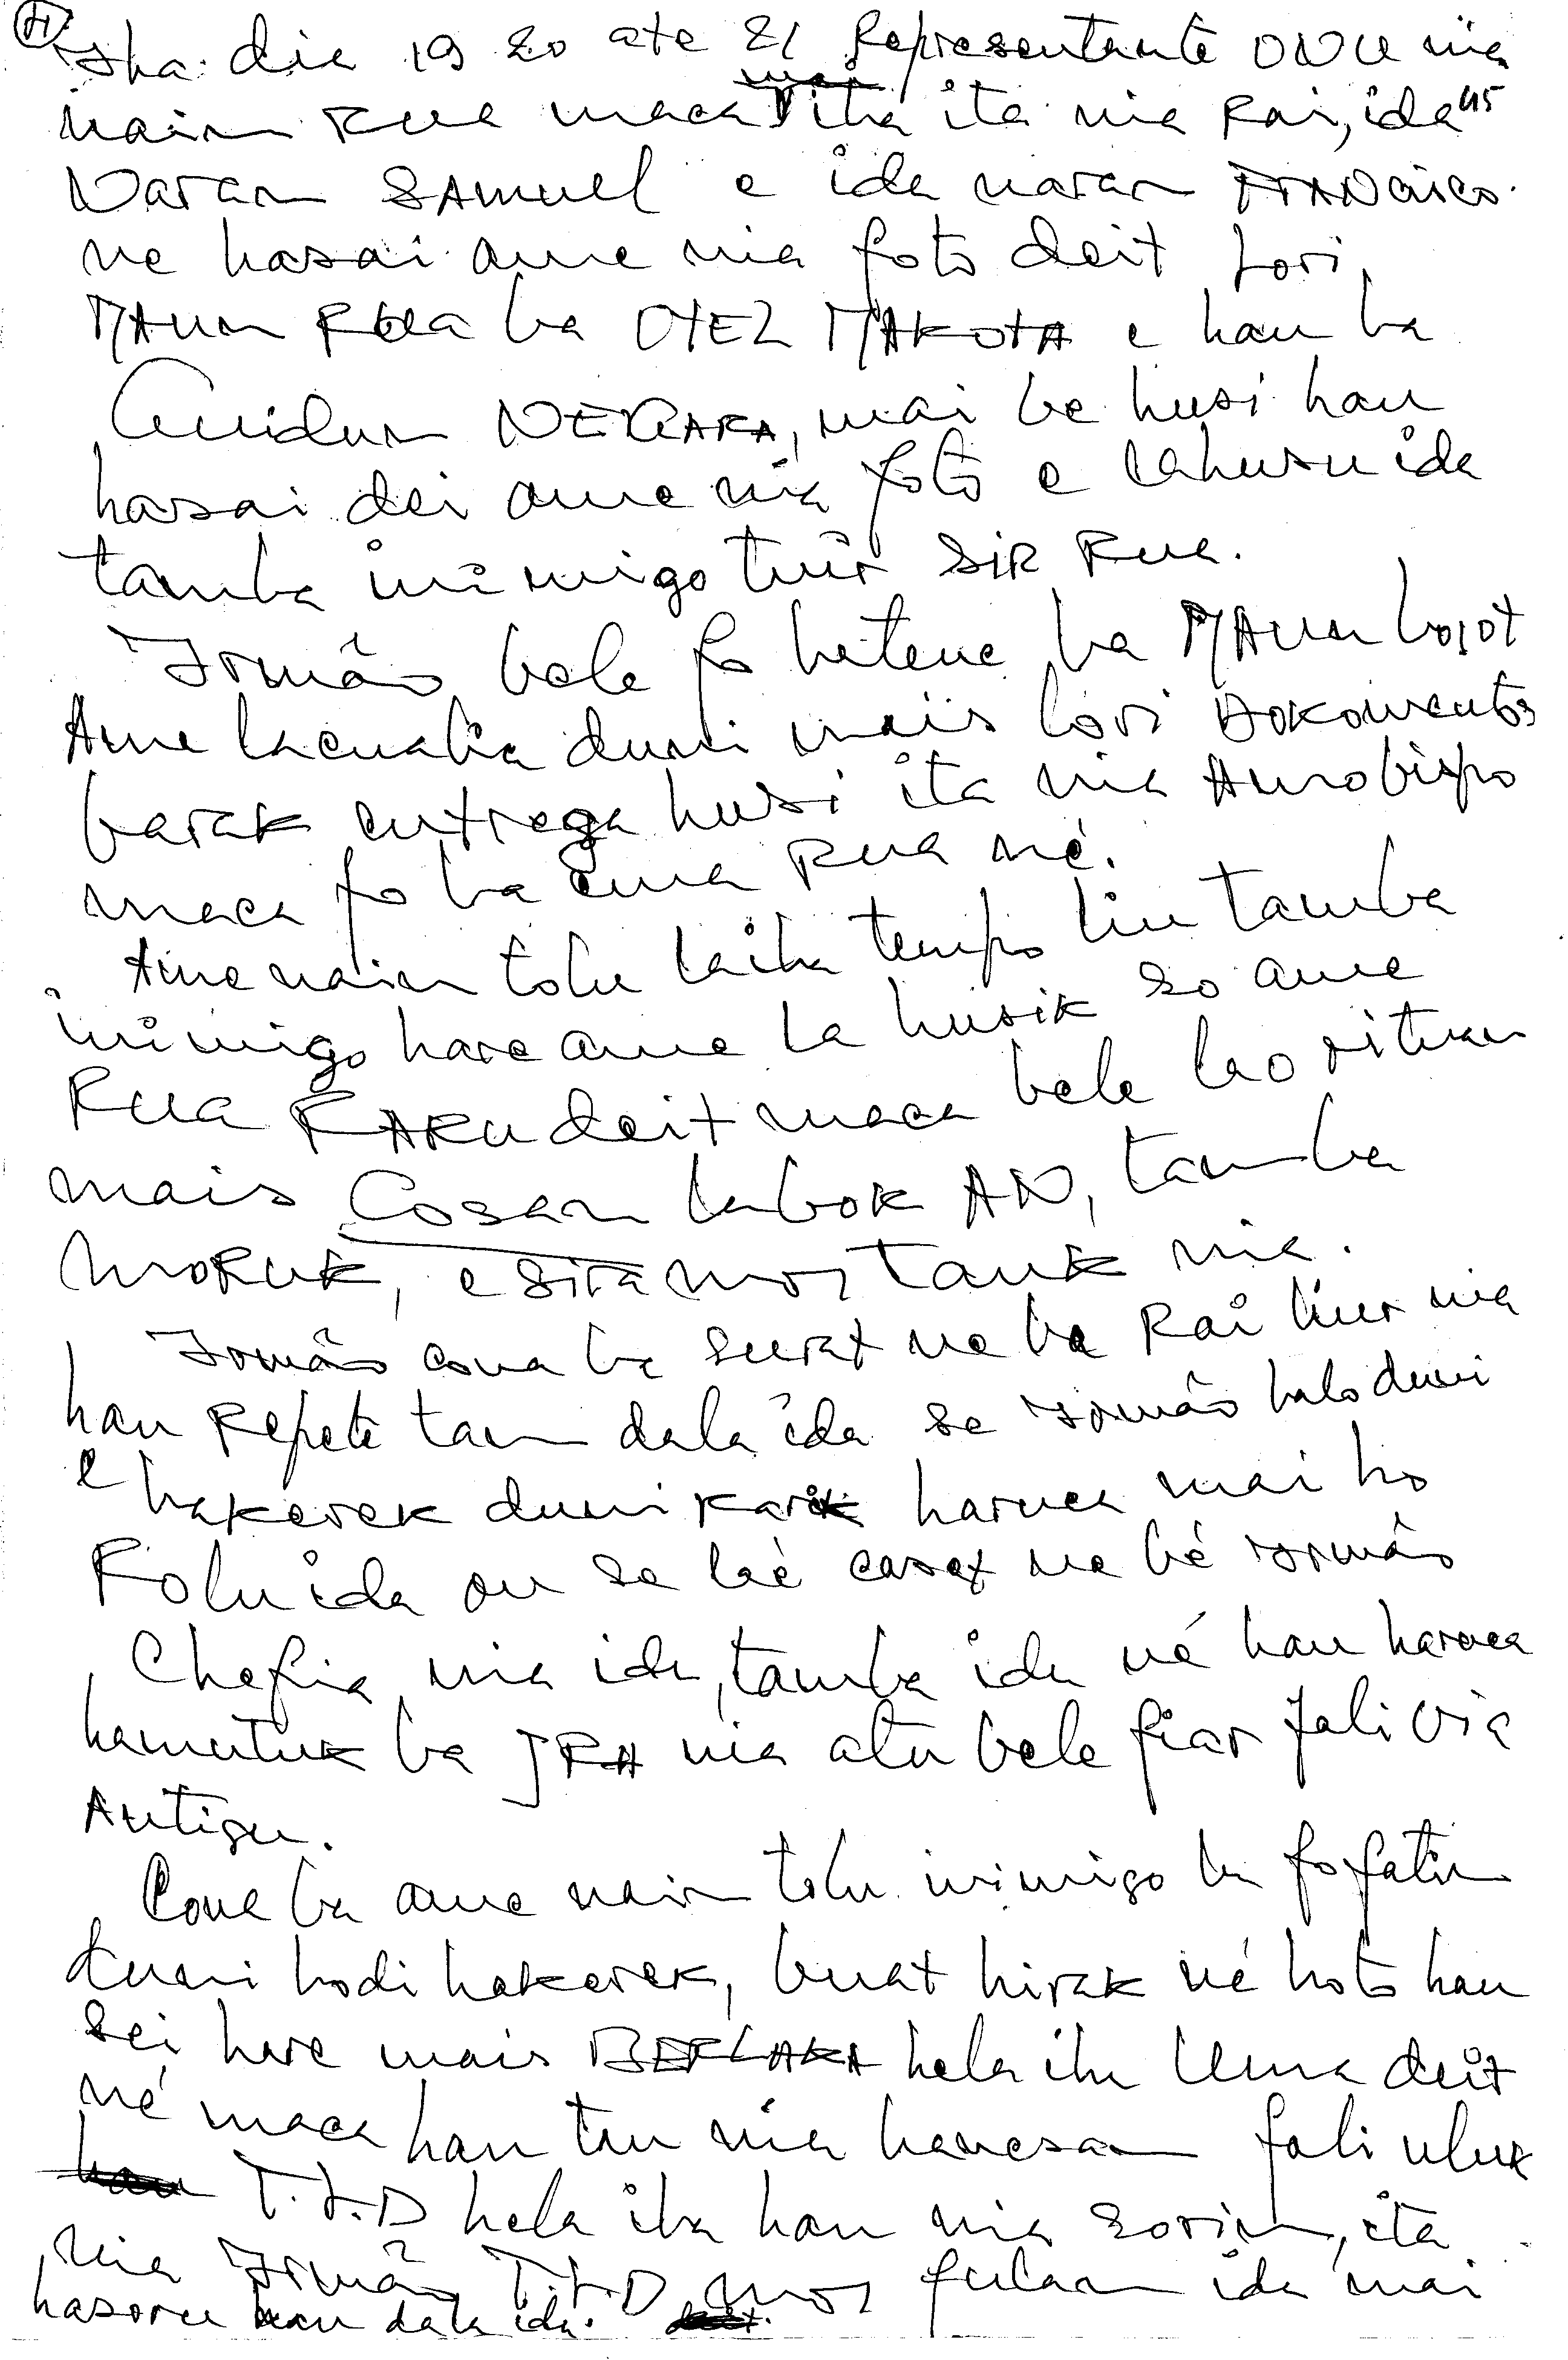 Iha dia 19 20 ate 21 Representante ONU nia
nain rua maca iha ita nia Rai, ida
Naran SAMUEL e ida naran FRANCisco.
ne hasai ame nia foto deit Lori
MAun Rua ba OTEL MAKOTA e hau ba
NEGARA, mai be husi hau
hasai dei ame nia foto e lahusu ida
tamba inimigo tuir SIR Rua.
Irmão bele fo hatene ba MAun boiot
Ame lacualia duni mais lori DOKOmentos
barak entrega husi ita nia Amo bispo
maca fo ba ema Rua né.
Ame nain tolu laiha tempo liu tamba
inimigo hare ame la husik so ame
Rua KARU deit maca bele lao
mais Cosar labok AN, tamba
MORUK, e sira mos tauk nia.
Irmão cona ba surat ne ba Rai liur nia
hau Repete tan dala ida se Irmão halo duni
e hakerek duni karik haruca mai ho
Rolu ida ou se lae caset ne bé Irmão
Chefia nia ida, tamba ida né hau haruca
hamutuk ba JRA nia atu bele fiar fali Via
Antigu.
Cona ba ame nain tolu inimigo la fo fatin
duni hodi hakerek, buat hirak né hoto hau
sei hare mais BERLAKA hela iha Uma deit
né maca hau tau nia hanesan fali uluk
T.L.D hela iha hau nia sorin, ita
nia Irmão T.L.D mos fulan ida mai
hasoru hau dala ida.